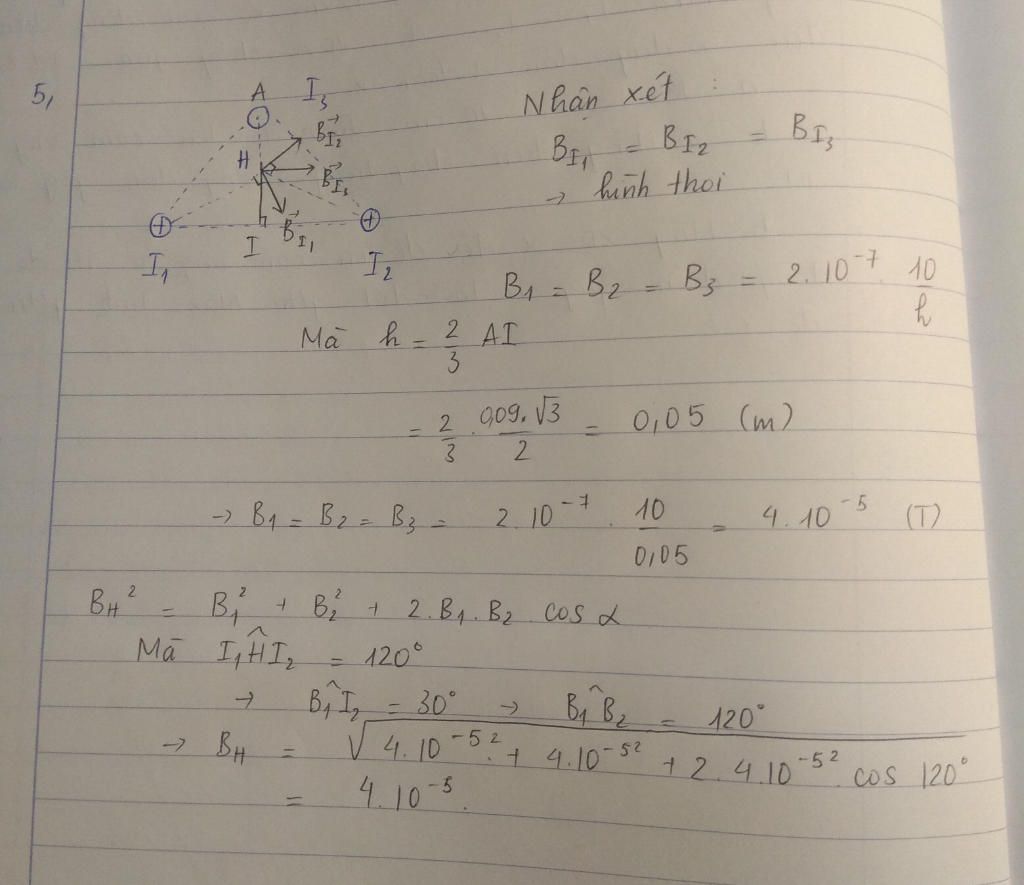 5,
A I₃
H B⃗I₂
B⃗I₃
I B⃗I₁
I₁ I₂
Nhận xét :
BI₁ = BI₂ = BI₃
→ hình thoi
B₁ = B₂ = B₃ = 2.10⁻⁷ . 10/h
Mà h = 2/3 AI
= 2/3 . 0,09.√3/2 = 0,05 (m)
→ B₁ = B₂ = B₃ = 2.10⁻⁷ . 10/0,05 = 4.10⁻⁵ (T)
BH² = B₁² + B₂² + 2.B₁.B₂ cos α
Mà I₁ĤI₂ = 120°
→ B₁^I₂ = 30° → B₁^B₂ = 120°
→ BH = √(4.10⁻⁵² + 4.10⁻⁵² + 2.4.10⁻⁵² cos 120°)
= 4.10⁻⁵.